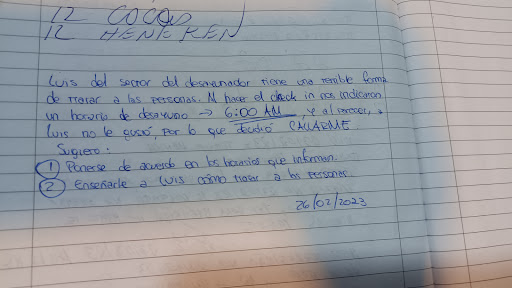 12 COCAS
12 HENEKEN
Luis del sector del desayunador tiene una terrible forma
de tratar a las personas. Al hacer el check in nos indicaron
un horario de desayuno → 6:00 AM, y al parecer, a
Luis no le gustó, por lo que decidió CALLARME
Sugiero:
① Ponerse de acuerdo en los horarios que informan.
② Enseñarle a Luis cómo tratar a las personas.
26/02/2023